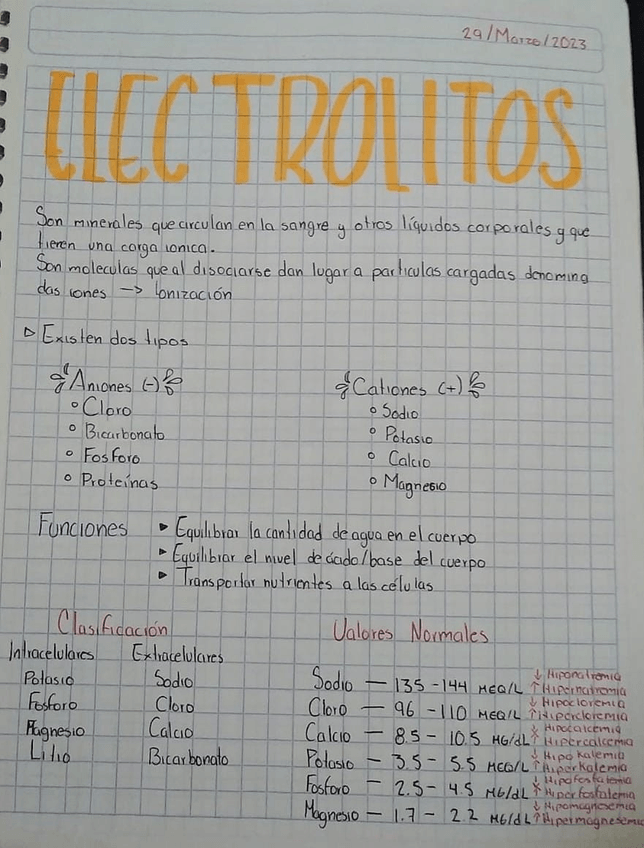 29/Marzo/2023
ELECTROLITOS
Son minerales que circulan en la sangre y otros líquidos corporales y que
tienen una carga ionica.
Son moleculas que al disociarse dan lugar a particulas cargadas denomina
das iones → Ionización
Existen dos tipos
Aniones (-)
Cloro
Bicarbonato
Fosforo
Proteínas
Cationes (+)
Sodio
Potasio
Calcio
Magnesio
Funciones ▸ Equilibrar la cantidad de agua en el cuerpo
▸ Equilibrar el nivel de ácido/base del cuerpo
▸ Transportar nutrientes a las células
Clasificación
Intracelulares Extracelulares
Potasio Sodio
Fosforo Cloro
Magnesio Calcio
Litio Bicarbonato
Valores Normales
Sodio — 135 - 144 MEQ/L ↓ Hiponatremia ↑ Hipernatremia
Cloro — 96 - 110 MEQ/L ↓ Hipocloremia ↑ Hipercloremia
Calcio — 8.5 - 10.5 MG/dL ↓ Hipocalcemia ↑ Hipercalcemia
Potasio — 3.5 - 5.5 MEQ/L ↓ Hipokalemia ↑ Hiperkalemia
Fosforo — 2.5 - 4.5 MG/dL ↓ Hipofosfatemia ↑ Hiperfosfatemia
Magnesio — 1.7 - 2.2 MG/dL ↓ Hipomagnesemia ↑ Hipermagnesemia